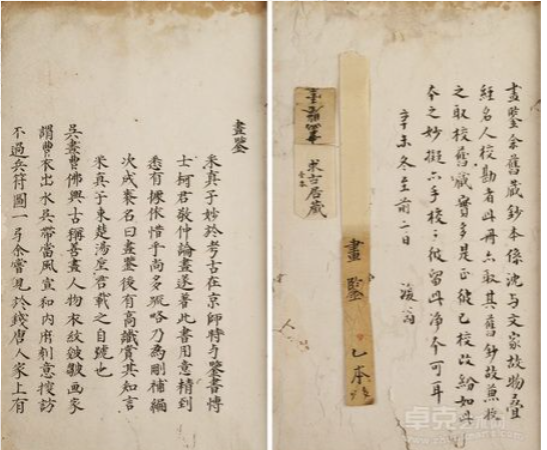 畫鑒余舊藏鈔本係沈与文家故物疊
經名人校勘者此冊亦取其舊鈔故兼收
之取校舊藏實多是正彼已校改紛如此
本之妙擬不手校之彼留此淨本可耳
辛未冬至前二日
復翁
畫鑒 乙本
求古居藏
畫鑒
采真子妙於考古在京師時与鑒書博
士柯君敬仲論畫遂著此書用意精到
悉有據依惜乎尚多疎略乃為刪補編
次成袠名曰畫鑒後有高識賞其知言
采真子東楚湯垕君載之自號也
吳畫曹佛興古稱善畫人物衣紋皴皺画家
謂曹衣出水吳帶當風宣和内府刻意搜訪
不過兵符圖一弓余嘗見於錢唐人家上有
卓克